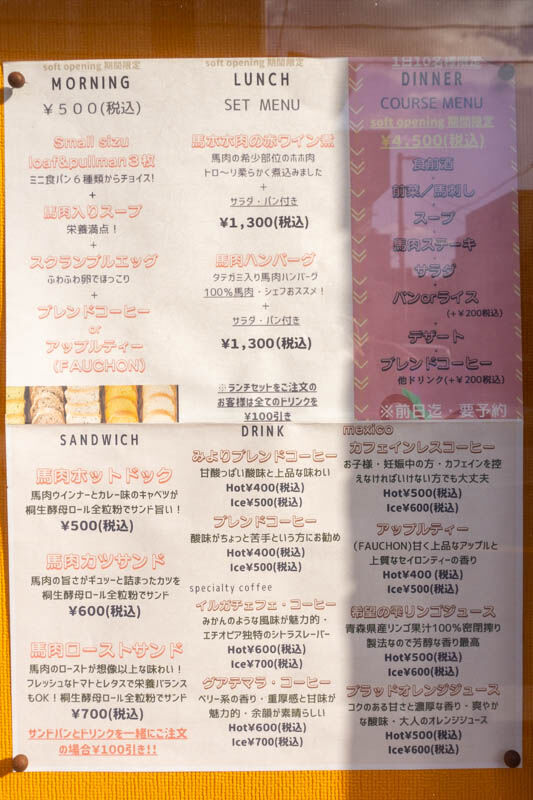 soft opening 期間限定
MORNING
¥500(税込)
Small sizu
loaf&pullman3枚
ミニ食パン6種類からチョイス!
+
馬肉入りスープ
栄養満点!
+
スクランブルエッグ
ふわふわ卵でほっこり
+
ブレンドコーヒー
or
アップルティー
(FAUCHON)
soft opening 期間限定
LUNCH
SET MENU
馬ホホ肉の赤ワイン煮
馬肉の希少部位のホホ肉
トロ〜リ柔らかく煮込みました
+
サラダ・パン付き
¥1,300(税込)
馬肉ハンバーグ
タテガミ入り馬肉ハンバーグ
100%馬肉・シェフおススメ!
+
サラダ・パン付き
¥1,300(税込)
※ランチセットをご注文の
お客様は全てのドリンクを
¥100引き
1日10名様限定
DINNER
COURSE MENU
soft opening 期間限定
¥4,500(税込)
食前酒
前菜/馬刺し
スープ
馬肉ステーキ
サラダ
パンorライス
(+¥200税込)
デザート
ブレンドコーヒー
他ドリンク(+¥200税込)
※前日迄・要予約
SANDWICH
馬肉ホットドック
馬肉ウインナーとカレー味のキャベツが
桐生酵母ロール全粒粉でサンド旨い!
¥500(税込)
馬肉カツサンド
馬肉の旨さがギュッーと詰まったカツを
桐生酵母ロール全粒粉でサンド
¥600(税込)
馬肉ローストサンド
馬肉のローストが想像以上な味わい!
フレッシュなトマトとレタスで栄養バランス
もOK!桐生酵母ロール全粒粉でサンド
¥700(税込)
サンドパンとドリンクを一緒にご注文
の場合¥100引き!!
DRINK
みよりブレンドコーヒー
甘酸っぱい酸味と上品な味わい
Hot¥400(税込)
Ice¥500(税込)
ブレンドコーヒー
酸味がちょっと苦手という方にお勧め
Hot¥400(税込)
Ice¥500(税込)
specialty coffee
イルガチェフェ・コーヒー
みかんのような風味が魅力的・
エチオピア独特のシトラスレーバー
Hot¥600(税込)
Ice¥700(税込)
グアテマラ・コーヒー
ベリー系の香り・重厚感と甘味が
魅力的・余韻が素晴らしい
Hot¥600(税込)
Ice¥700(税込)
mexico
カフェインレスコーヒー
お子様・妊娠中の方・カフェインを控
えなければいけない方でも大丈夫
Hot¥500(税込)
Ice¥600(税込)
アップルティー
(FAUCHON)甘く上品なアップルと
上質なセイロンティーの香り
Hot¥400(税込)
Ice¥500(税込)
希望の雫リンゴジュース
青森県産リンゴ果汁100%密閉搾り
製法なので芳醇な香り最高
Hot¥500(税込)
Ice¥600(税込)
ブラッドオレンジジュース
コクのある甘さと濃厚な香り・爽やか
な酸味・大人のオレンジジュース
Hot¥500(税込)
Ice¥600(税込)